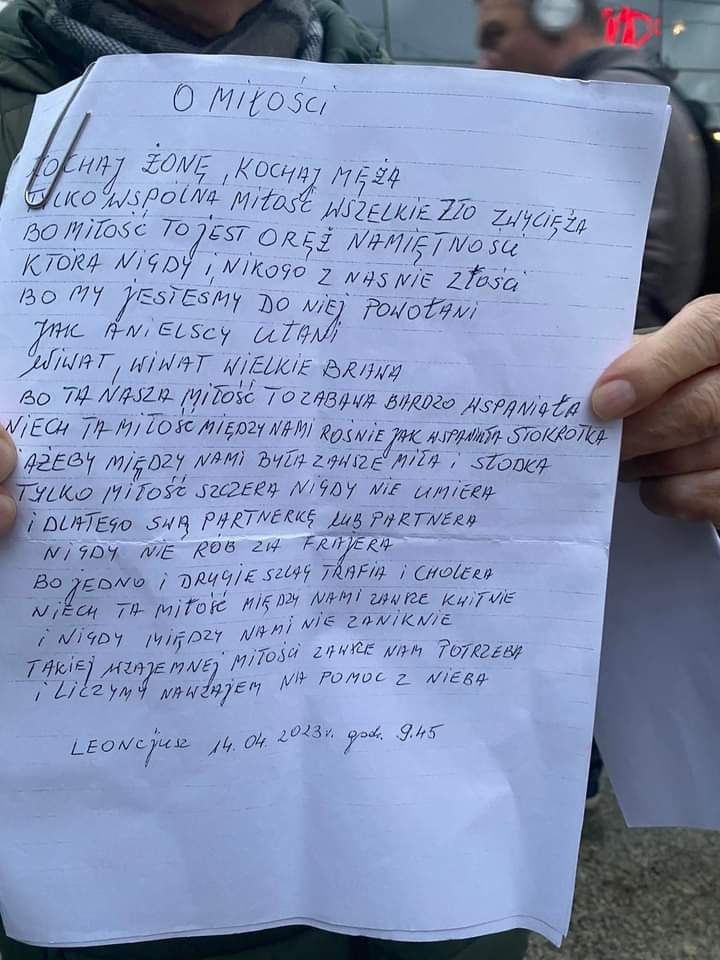 O MIŁOŚCI
KOCHAJ ŻONĘ, KOCHAJ MĘŻA
TYLKO WSPÓLNA MIŁOŚĆ WSZELKIE ZŁO ZWYCIĘŻA
BO MIŁOŚĆ TO JEST ORĘŻ NAMIĘTNOŚCI
KTÓRA NIGDY I NIKOGO Z NAS NIE ZŁOŚCI
BO MY JESTEŚMY DO NIEJ POWOŁANI
JAK ANIELSCY UŁANI
WIWAT, WIWAT WIELKIE BRAWA
BO TA NASZA MIŁOŚĆ TO ZABAWA BARDZO WSPANIAŁA
NIECH TA MIŁOŚĆ MIĘDZY NAMI ROŚNIE JAK WSPANIAŁA STOKROTKA
AŻEBY MIĘDZY NAMI BYŁA ZAWSZE MIŁA I SŁODKA
TYLKO MIŁOŚĆ SZCZERA NIGDY NIE UMIERA
I DLATEGO SWĄ PARTNERKĘ LUB PARTNERA
NIGDY NIE RÓB ZA FRAJERA
BO JEDNO I DRUGIE SZLAG TRAFIA I CHOLERA
NIECH TA MIŁOŚĆ MIĘDZY NAMI ZAWSZE KWITNIE
I NIGDY MIĘDZY NAMI NIE ZANIKNIE
TAKIEJ WZAJEMNEJ MIŁOŚCI ZAWSZE NAM POTRZEBA
I LICZYMY NAWZAJEM NA POMOC Z NIEBA
LEONCJUSZ 14.04.2023r. godz. 9.45